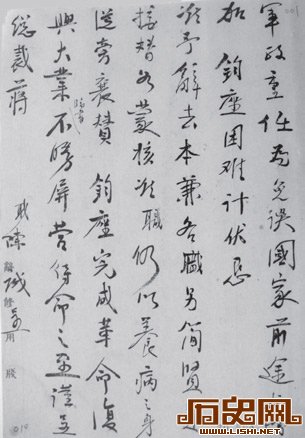 軍政重任為免誤國家前途增
加 鈞座困難計伏懇
准予辭去本兼各職另簡賢
接替如蒙核准職仍以養病之身
從旁襄贊 鈞座完成革命復
興大業不勝屏營待命之至謹呈
總裁蔣
職陳誠
辭修用牋
历史网
WWW.LISHI.NET